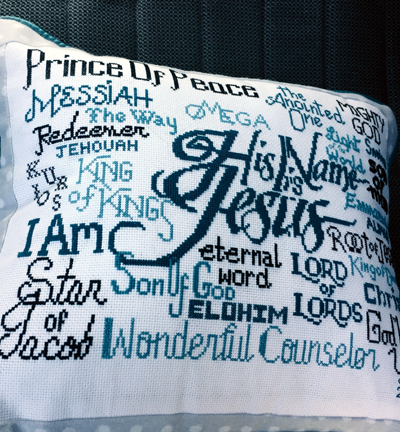 Prince Of Peace
MESSIAH
The Anointed One
MIGHTY GOD
The Way
OMEGA
Redeemer
JEHOVAH
Light
World
His Name Is Jesus
KING of KINGS
I Am
eternal word
ROOT of
King of
LORD of LORDS
Star of Jacob
Son Of God
ELOHIM
Wonderful Counselor